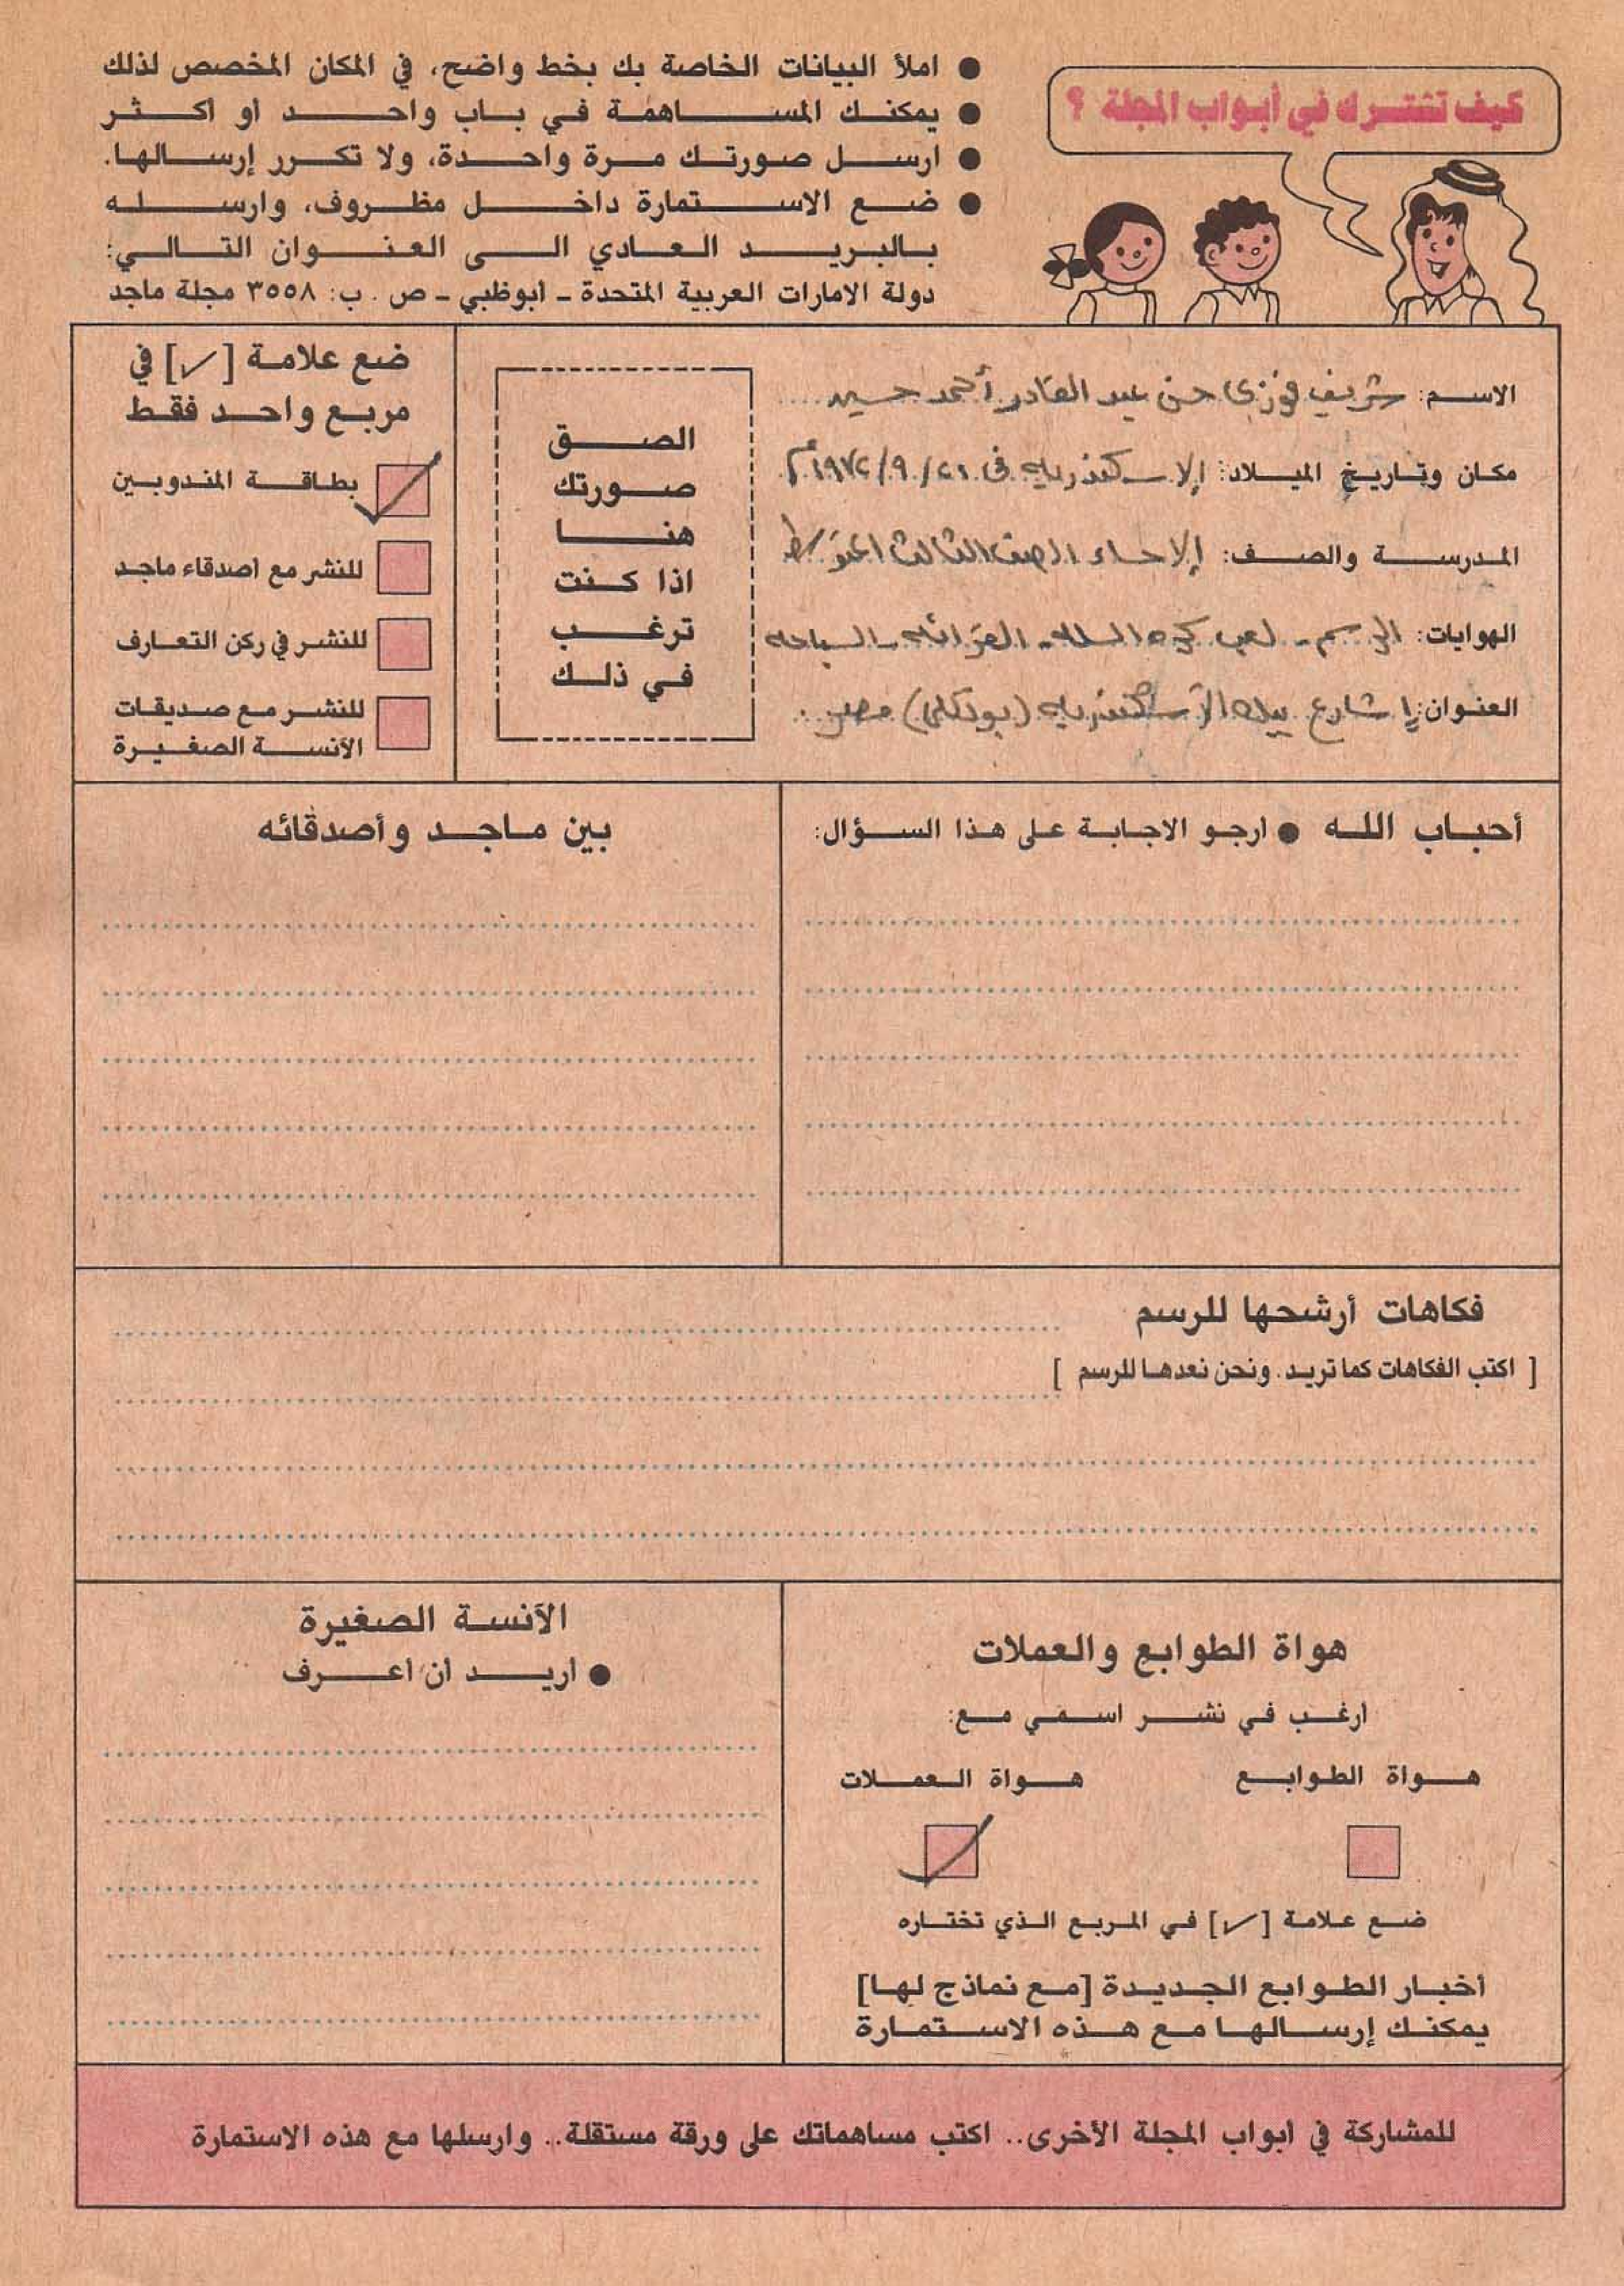 كيف تشترك في أبواب المجلة ؟
● املأ البيانات الخاصة بك بخط واضح، في المكان المخصص لذلك
● يمكنك المساهمة في باب واحد أو أكثر
● ارسل صورتك مرة واحدة، ولا تكرر إرسالها.
● ضع الاستمارة داخل مظروف، وارسله
بالبريد العادي الى العنوان التالي:
دولة الامارات العربية المتحدة - أبوظبي - ص . ب: ٣٥٥٨ مجلة ماجد
الاسم: شريف فوزى حسن عبد القادر أحمد حسين
مكان وتاريخ الميلاد: الإسكندريه فى ٢١/٩/١٩٧٢م
المدرسة والصف: الصف الثالث المتوسط
الهوايات: الرسم - لعب كره السله - القرائه - السباحه
العنوان: شارع الأسكندريه (بولكلى) مصر
الصق
صورتك
هنا
اذا كنت
ترغب
في ذلك
ضع علامة [✓] في
مربع واحد فقط
بطاقة المندوبين
للنشر مع أصدقاء ماجد
للنشر في ركن التعارف
للنشر مع صديقات
الآنسة الصغيرة
أحباب الله ● ارجو الاجابة على هذا السؤال:
بين ماجد وأصدقائه
فكاهات أرشحها للرسم
[ اكتب الفكاهات كما تريد. ونحن نعدها للرسم ]
هواة الطوابع والعملات
ارغب في نشر اسمي مع:
هواة الطوابع
هواة العملات
ضع علامة [✓] في المربع الذي تختاره
أخبار الطوابع الجديدة [مع نماذج لها]
يمكنك إرسالها مع هذه الاستمارة
الآنسة الصغيرة
● اريد أن أعرف
للمشاركة في ابواب المجلة الأخرى.. اكتب مساهماتك على ورقة مستقلة.. وارسلها مع هذه الاستمارة